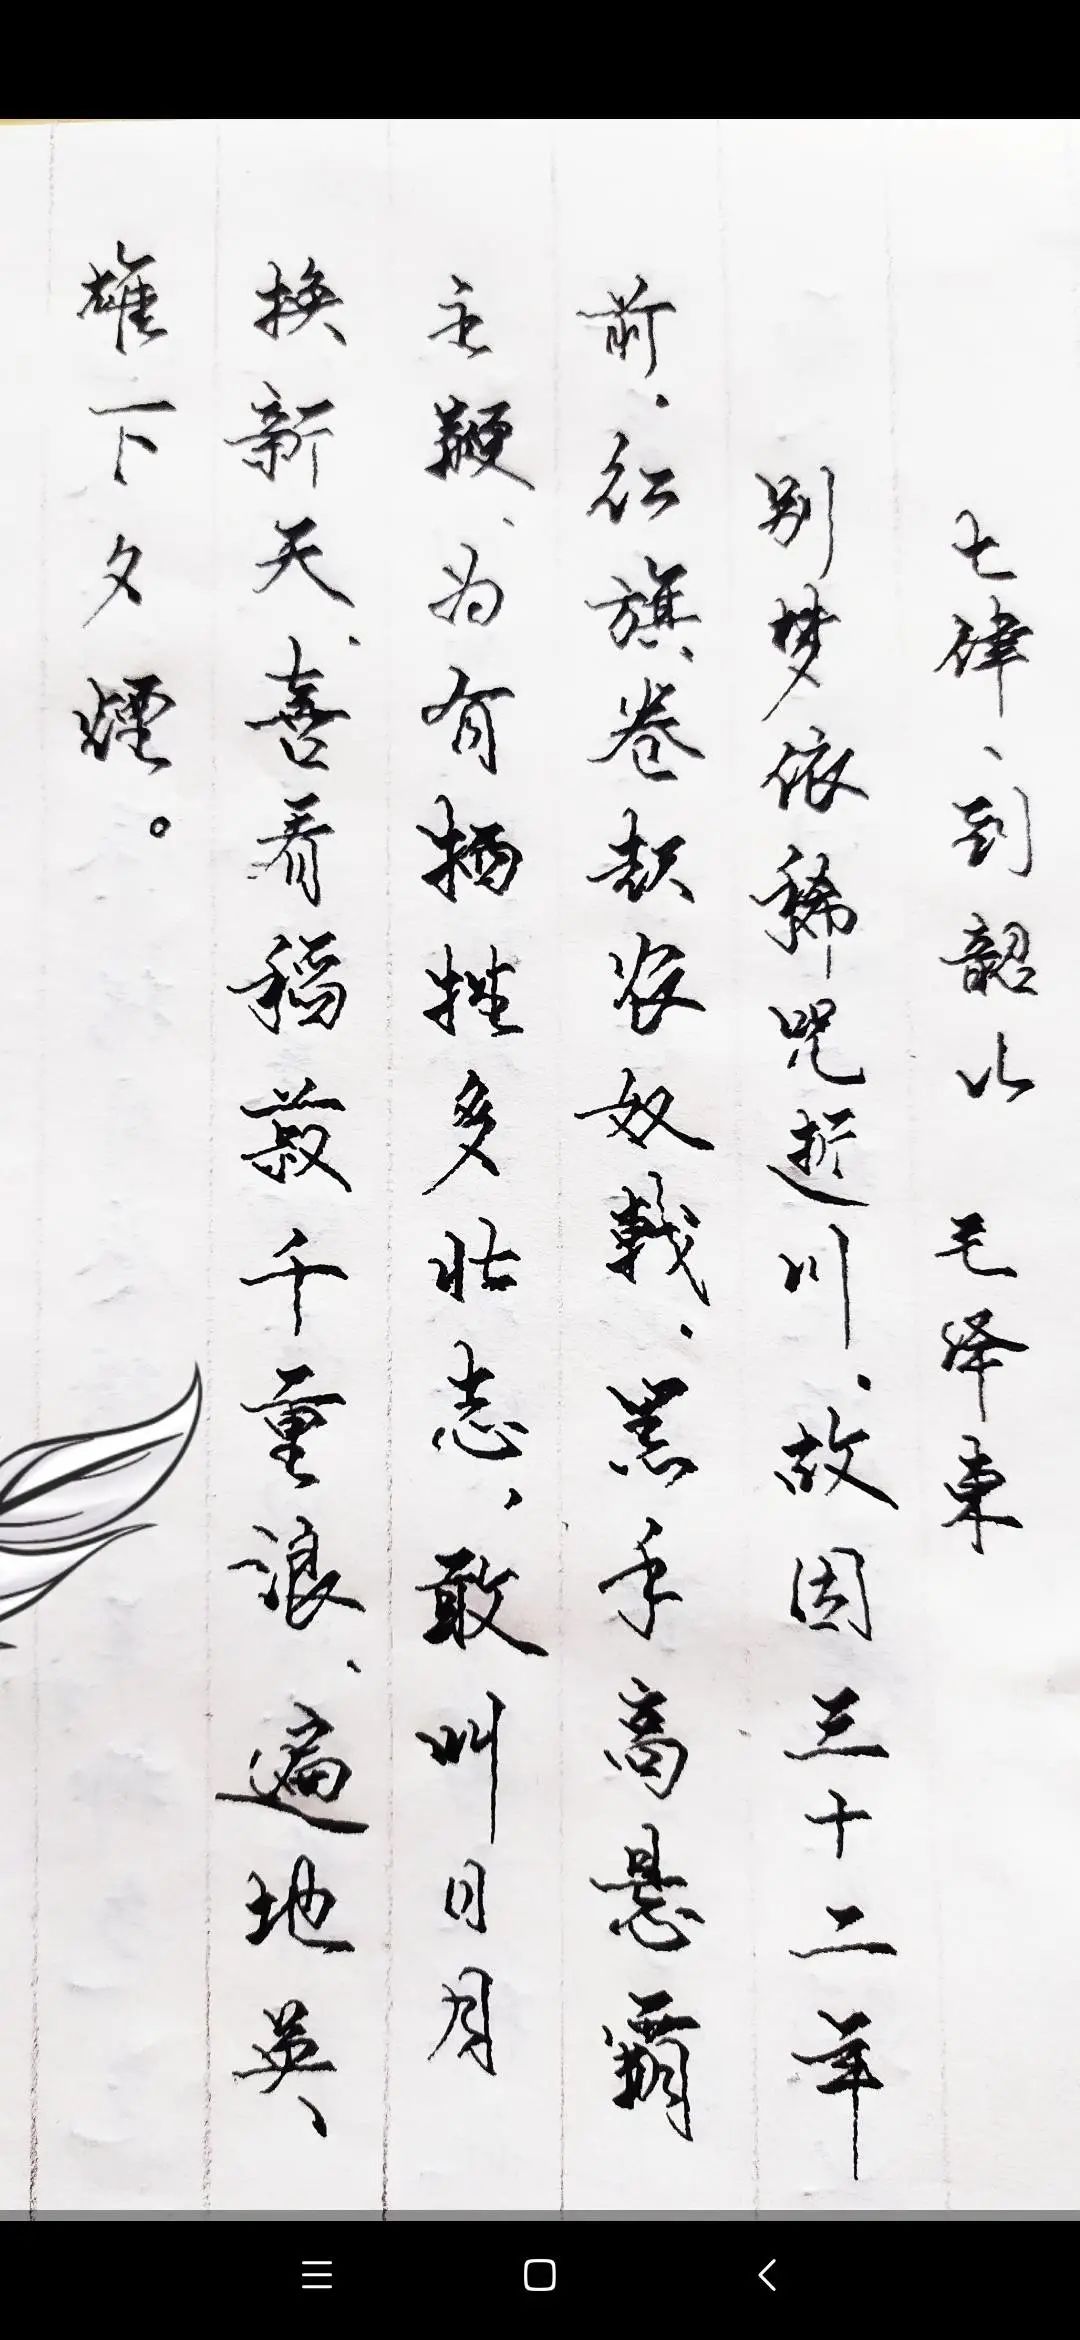 七律、到韶山 毛泽东
别梦依稀咒逝川、故园三十二年
前、红旗卷起农奴戟、黑手高悬霸
主鞭、为有牺牲多壮志、敢叫日月
换新天、喜看稻菽千重浪、遍地英
雄下夕煙。